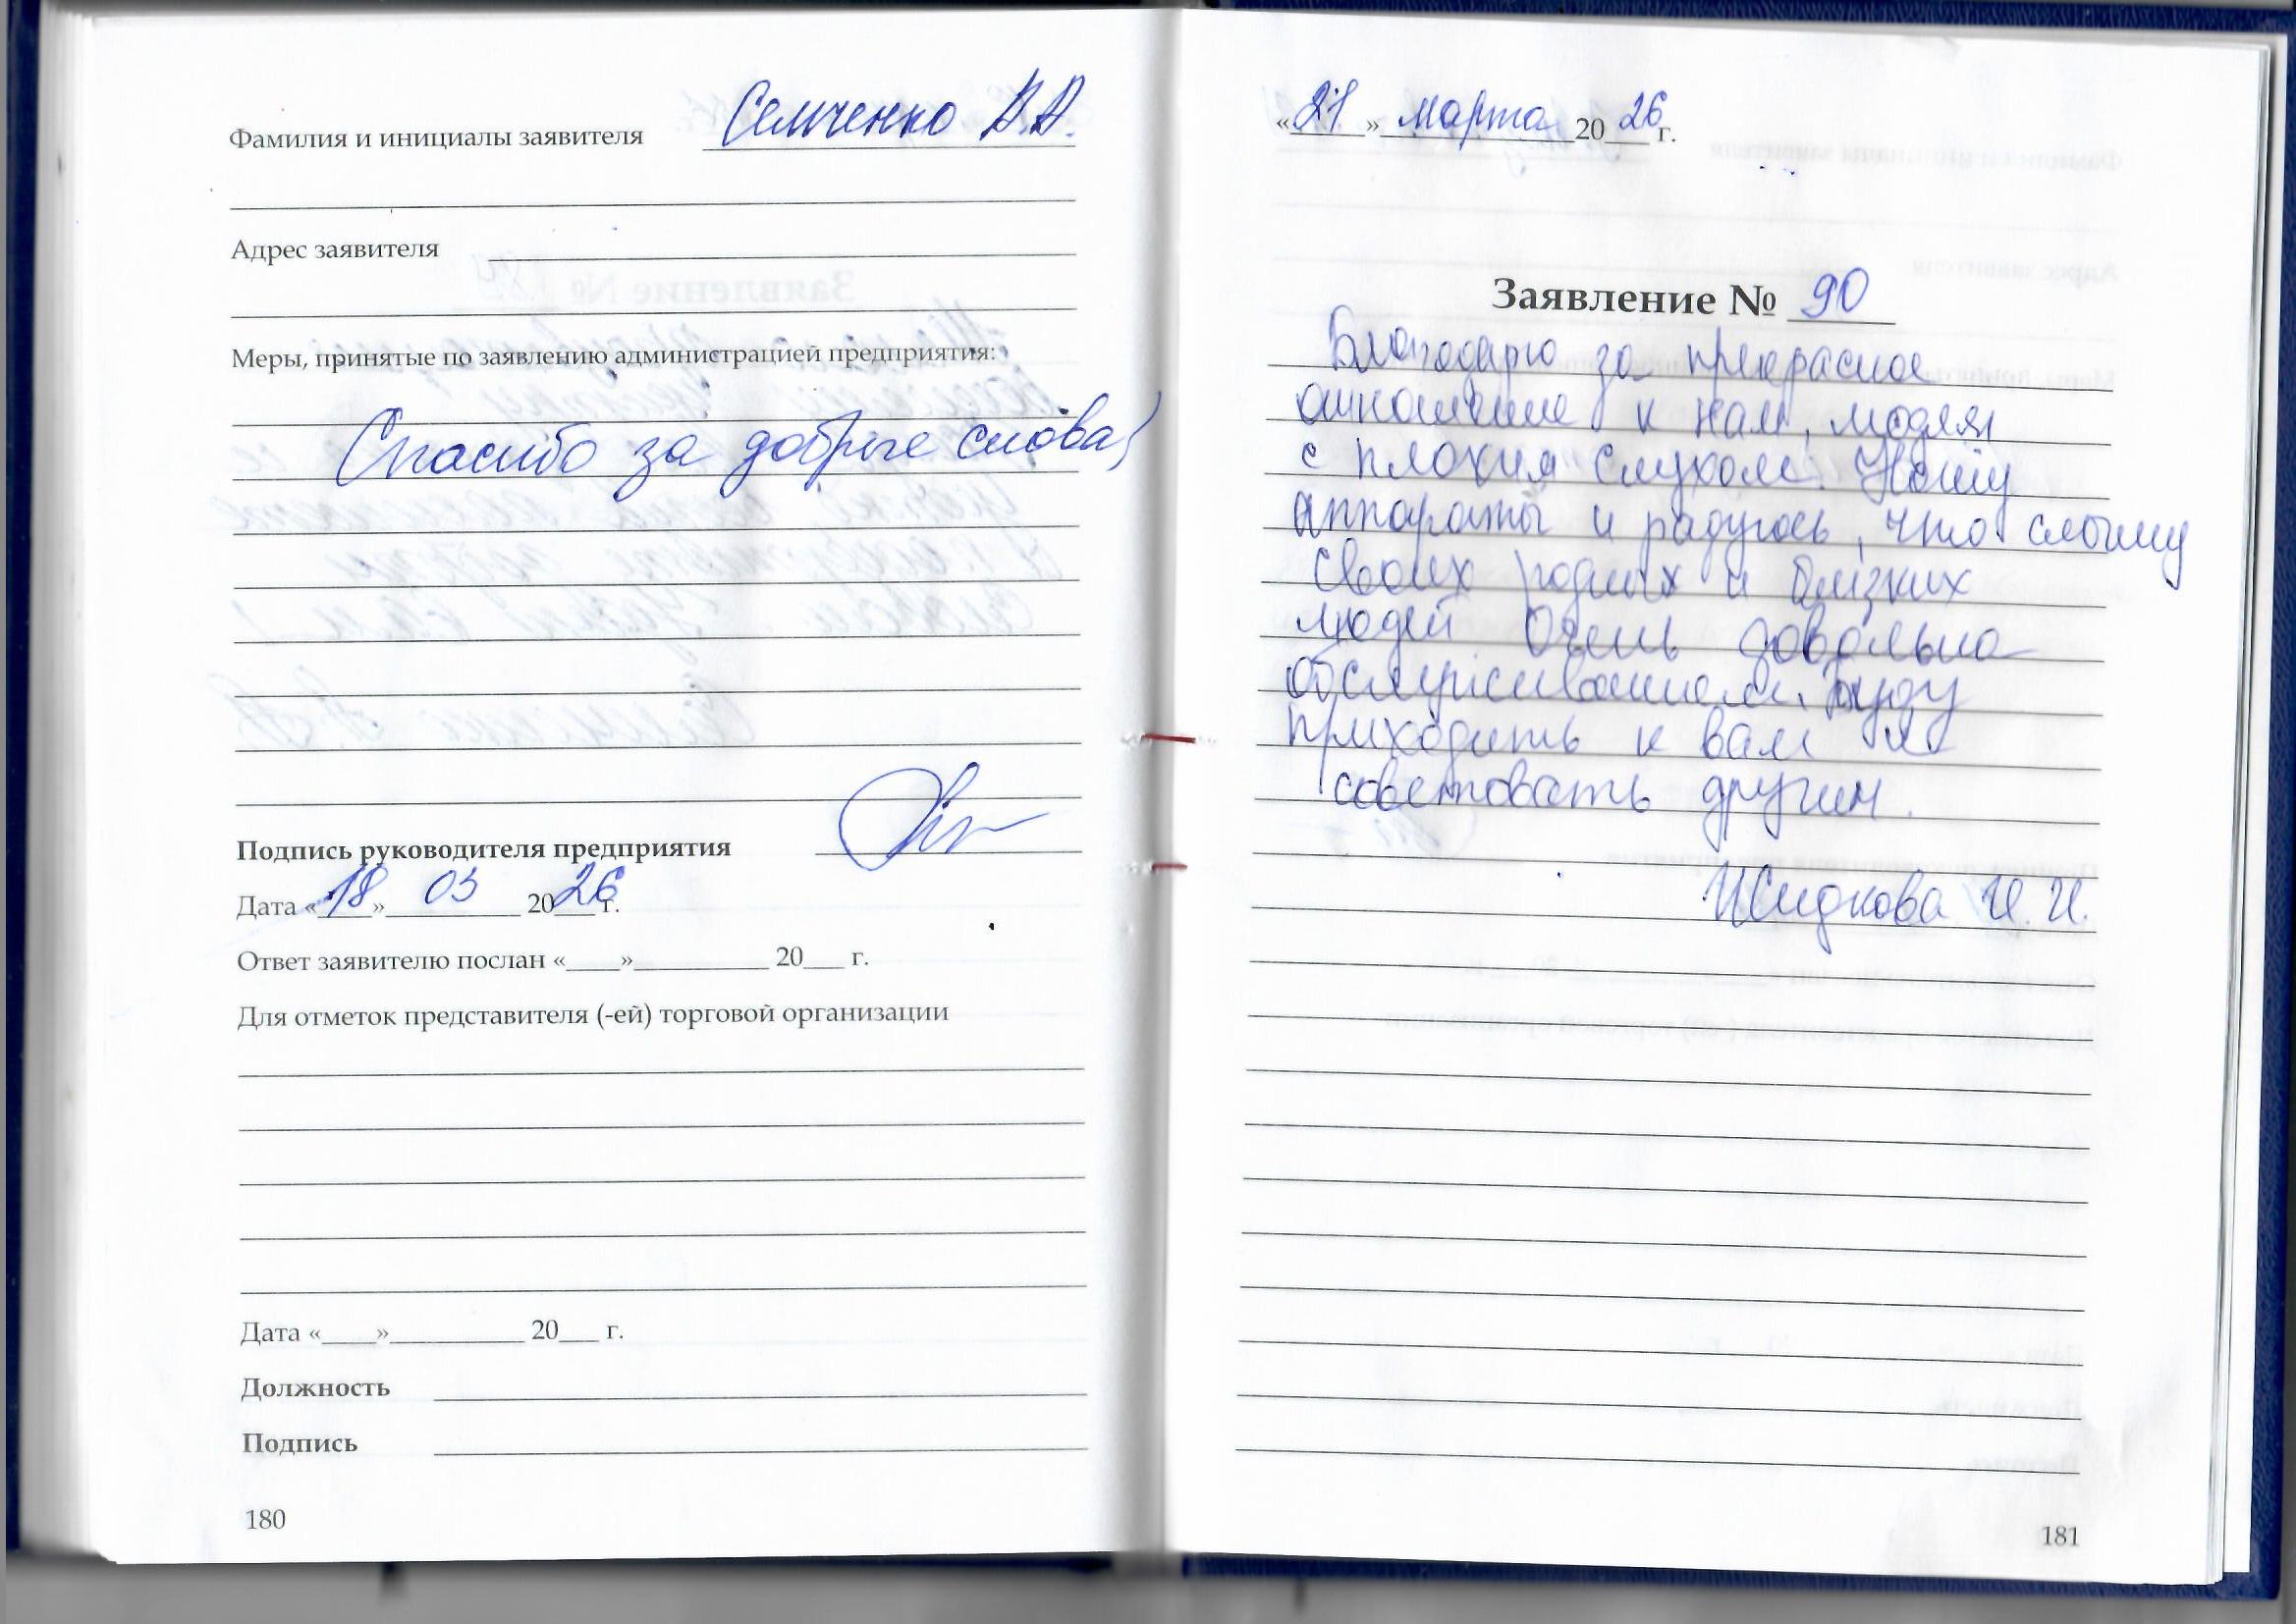 Фамилия и инициалы заявителя Семченко В.А.
Адрес заявителя
Меры, принятые по заявлению администрацией предприятия:
Спасибо за добрые слова)
Подпись руководителя предприятия
Дата «18» 03 2026 г.
Ответ заявителю послан «____»__________ 20___ г.
Для отметок представителя (-ей) торговой организации
Дата «____»__________ 20___ г.
Должность
Подпись
180
«27» марта 2026 г.
Заявление № 90
Благодарю за прекрасное
отношение к нам, людям
с плохим слухом. Ношу
аппараты и радуюсь, что слышу
своих родных и близких
людей Очень довольна
обслуживанием. Буду
приходить к вам и
советовать другим.
Жидкова И. И.
181